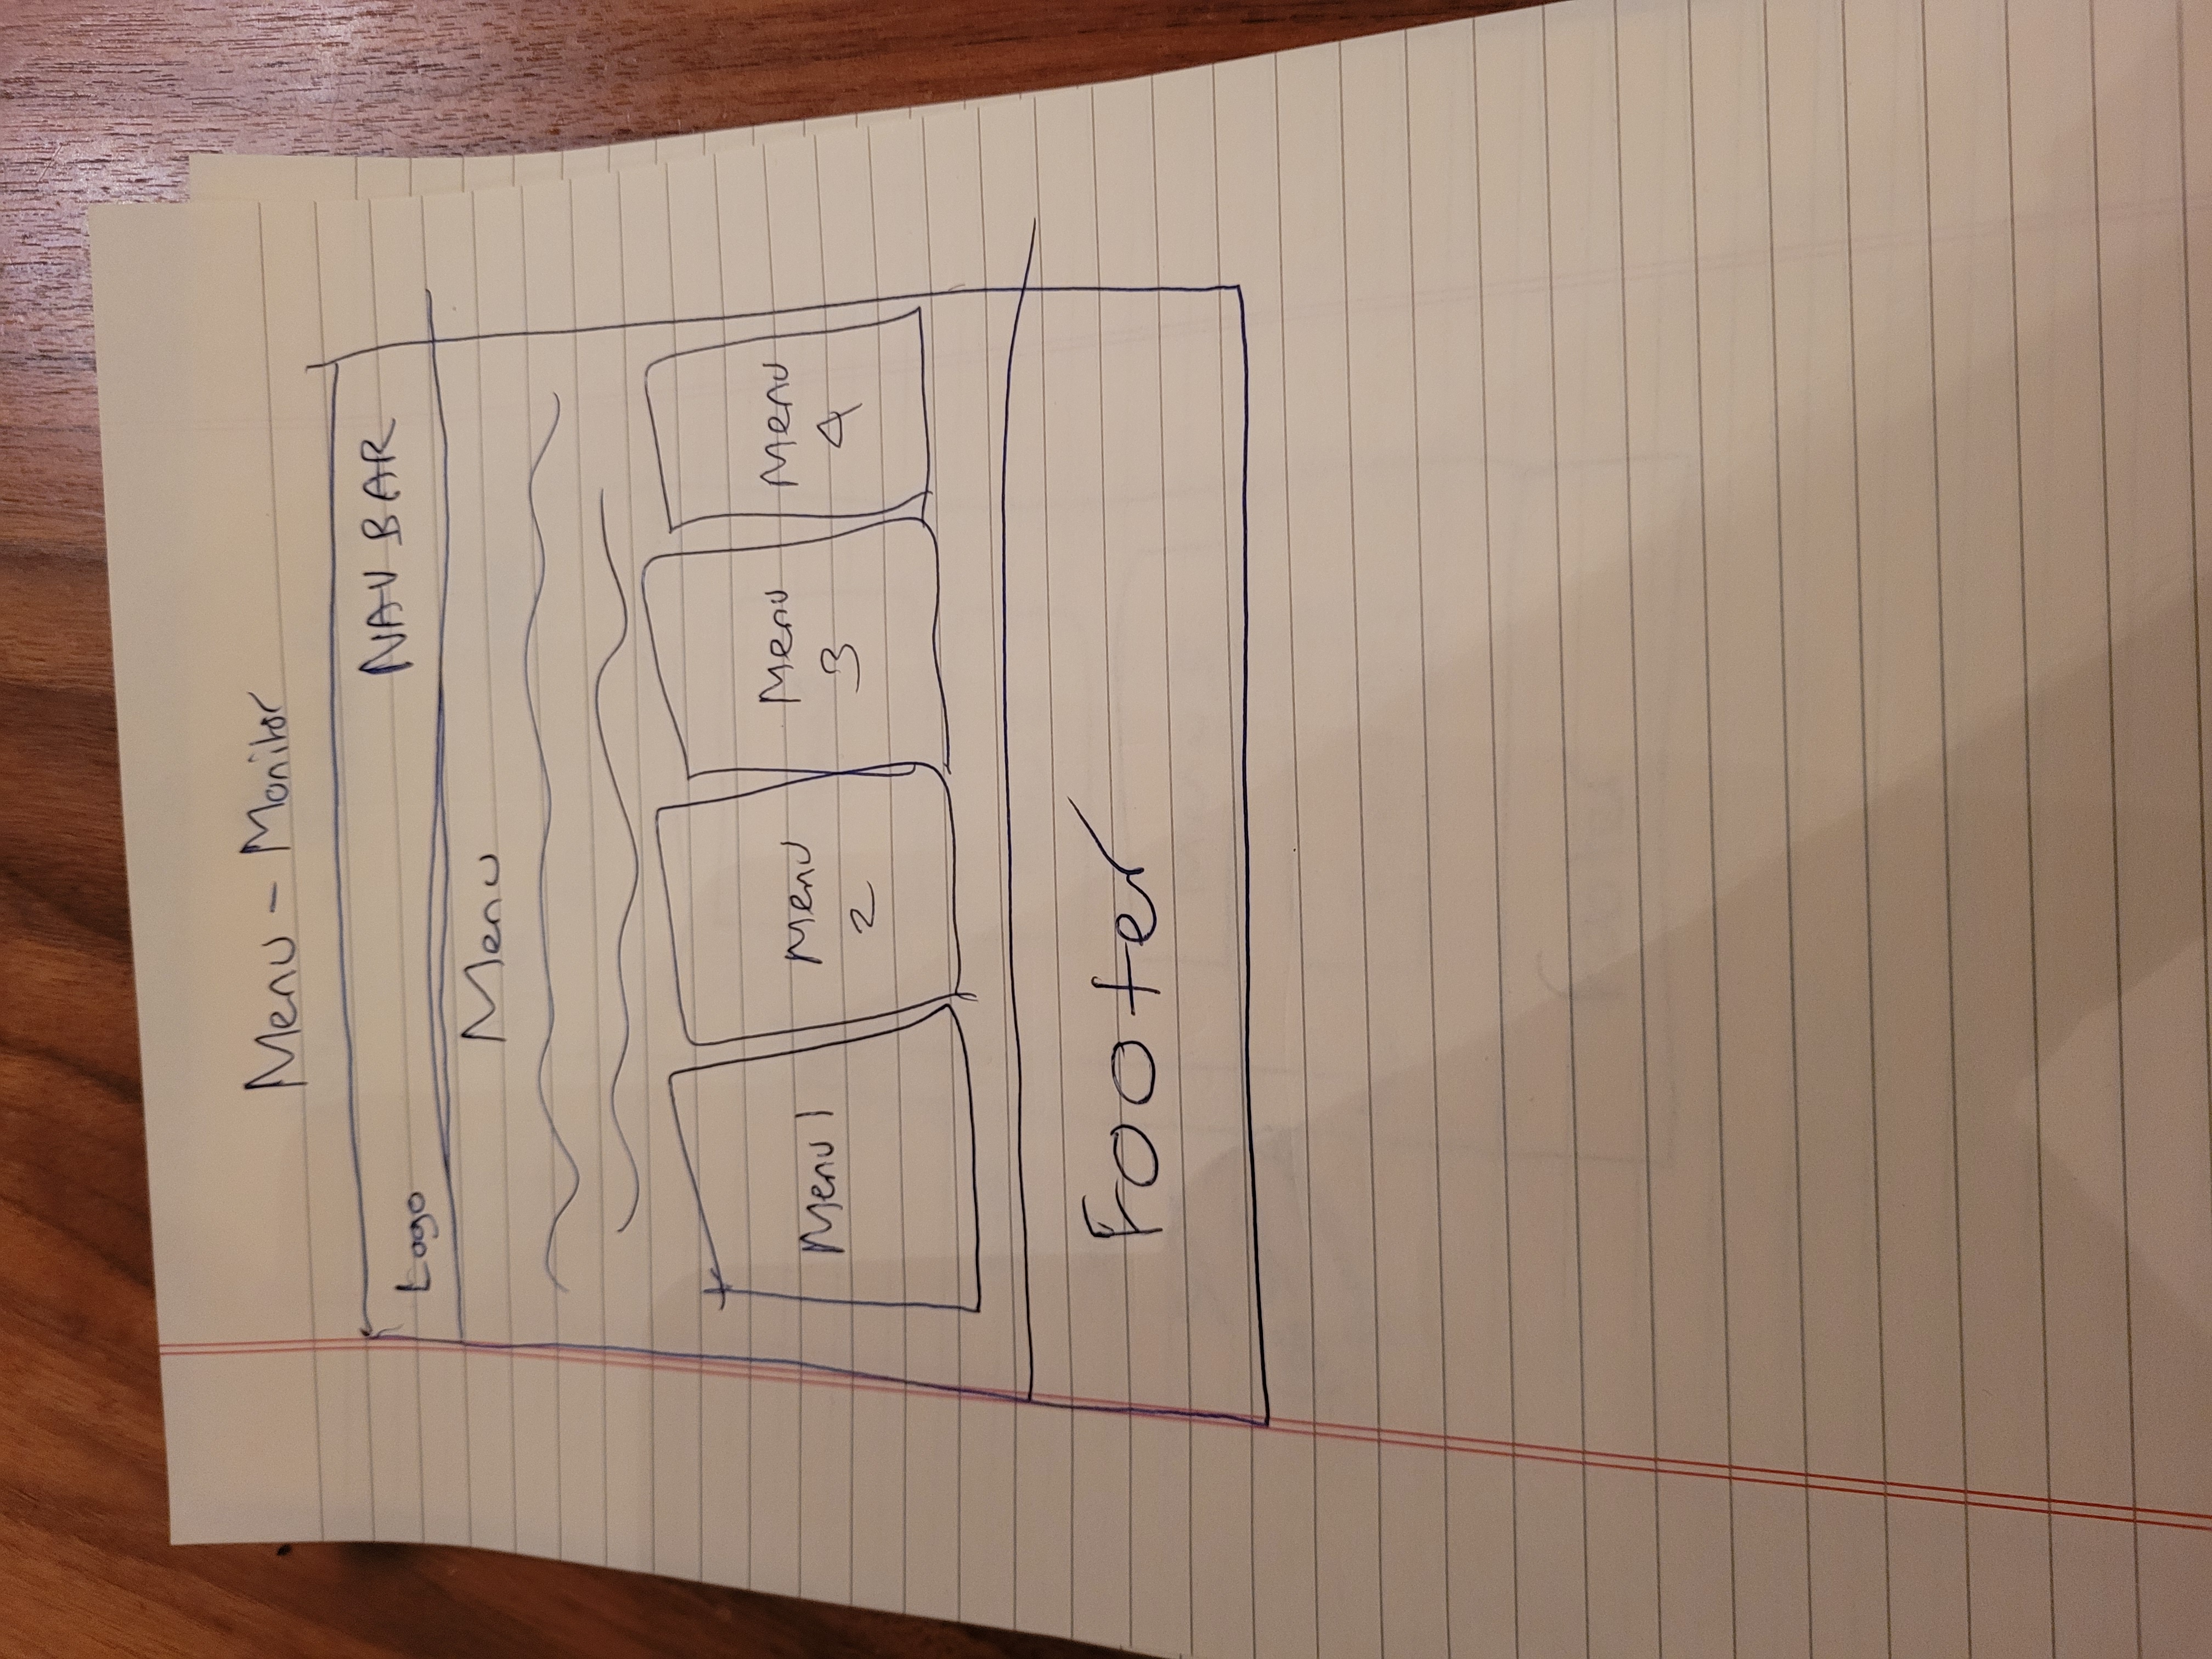 Menu - Monitor
Logo NAV BAR
Menu
Menu 1
Menu 2
Menu 3
Menu 4
Footer